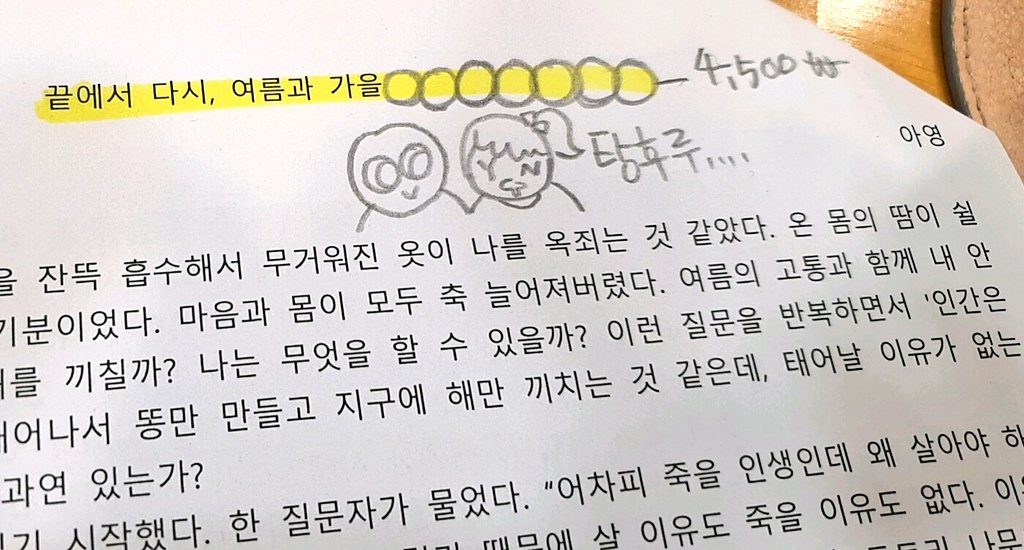 끝에서 다시, 여름과 가을
4,500₩
탕후루....
아영
잔뜩 흡수해서 무거워진 옷이 나를 옥죄는 것 같았다. 온 몸의 땀이 쉴
기분이었다. 마음과 몸이 모두 축 늘어져버렸다. 여름의 고통과 함께 내 안
끼칠까? 나는 무엇을 할 수 있을까? 이런 질문을 반복하면서 '인간은
똥만 만들고 지구에 해만 끼치는 것 같은데, 태어날 이유가 없는
과연 있는가?
시작했다. 한 질문자가 물었다. "어차피 죽을 인생인데 왜 살아야 하
때문에 살 이유도 죽을 이유도 없다.